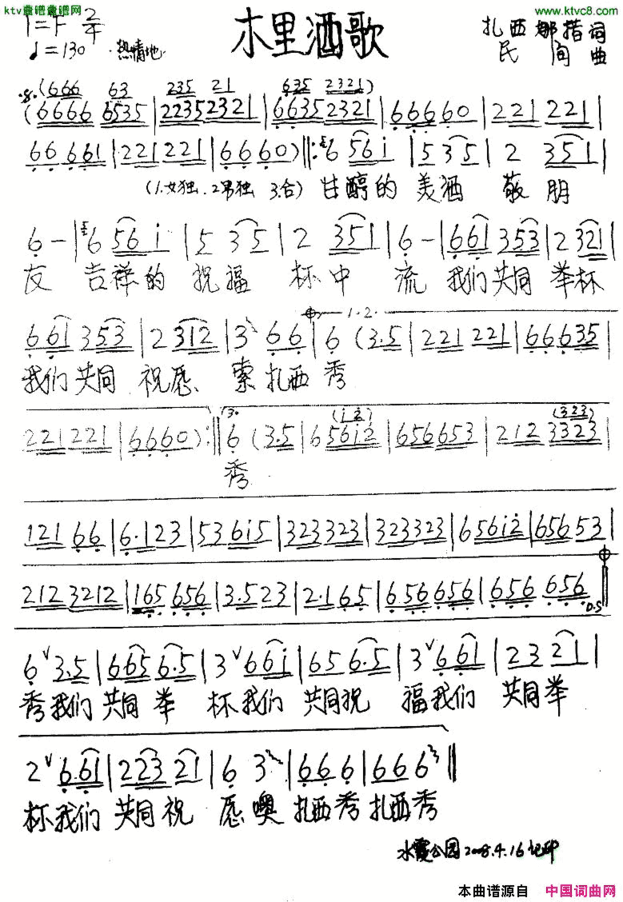 ktv曲谱曲谱网
www.ktv8.com
http://www.ktvc8.com
1=F 2/4
♩=130 热情地
木里酒歌
扎西娜措 词
民间 曲
(666 63 235 21 635 2321)
(6666 6535 | 2235 2321 | 6635 2321 | 66660 | 221 221 |
66 661 | 221 221 | 6660) ||: 6 561 | 5 35 | 2 351 |
(1.女独 2.男独 3.合) 甘醇的 美酒 敬 朋
6 - | 6 56 i | 5 35 | 2 351 | 6 - | 661 353 | 2 321 |
友 吉祥的 祝福 杯中 流 我们共同 举杯
1.2.
661 353 | 2 312 | 3 66 | 6 (3.5 | 221 221 | 66635 |
我们共同 祝愿 索 扎西 秀
3. (i2) (323)
221 221 | 6660) :|| 6 (3.5 | 6 5612 | 656653 | 212 3323 |
秀
121 66 | 6.123 | 53 6i5 | 323323 | 323323 | 656i2 | 65653 |
212 3212 | 165 656 | 3.523 | 2.165 | 656 656 | 656 656 ||
D.S
6 3.5 | 665 6.5 | 3 66i | 65 6.5 | 3 661 | 23 21 |
秀我们 共同举 杯我们 共同祝 福我们 共同举
2 6.61 | 223 21 | 6 3 | 66 6 | 666 ||
杯我们 共同祝 愿噢 扎西秀扎西秀
公园2008.4.16
本曲谱源自 中国词曲网